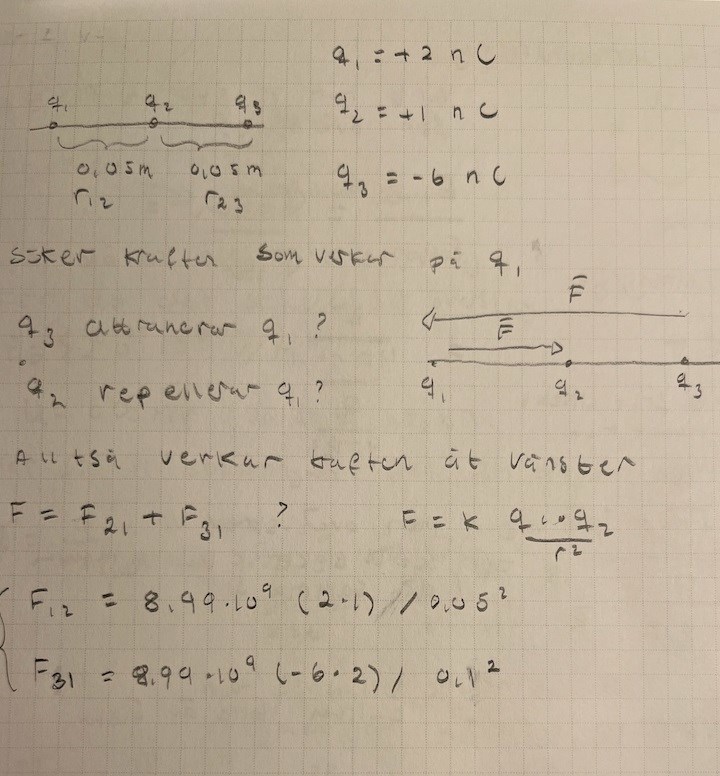 q₁ = +2 nC
q₁ q₂ q₃
q₂ = +1 nC
0,05m 0,05m
r₁₂ r₂₃
q₃ = -6 nC
Söker kraften som verkar på q₁
F̄
q₃ attraherar q₁ ?
F̄
q₁ q₂ q₃
q₂ repellerar q₁ ?
Alltså verkar kraften åt vänster
F = F₂₁ + F₃₁ ? F = k q₁·q₂ / r²
F₁₂ = 8,99·10⁹ (2·1) / 0,05²
F₃₁ = 8,99·10⁹ (-6·2) / 0,1²